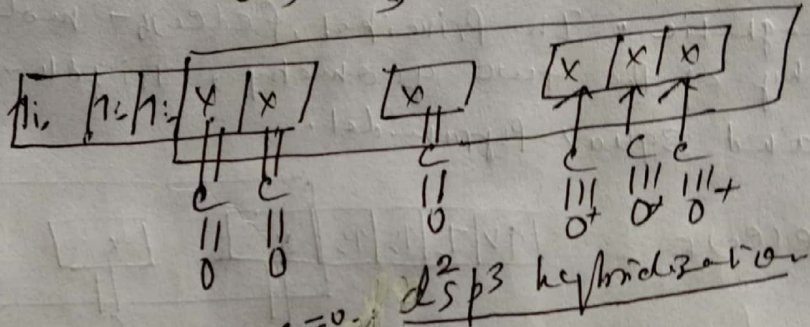 1i. 1i 1i x x x x x x
C C C C C C
O O O O⁺ O⁺ O⁺
=0. d²sp³ hybridization